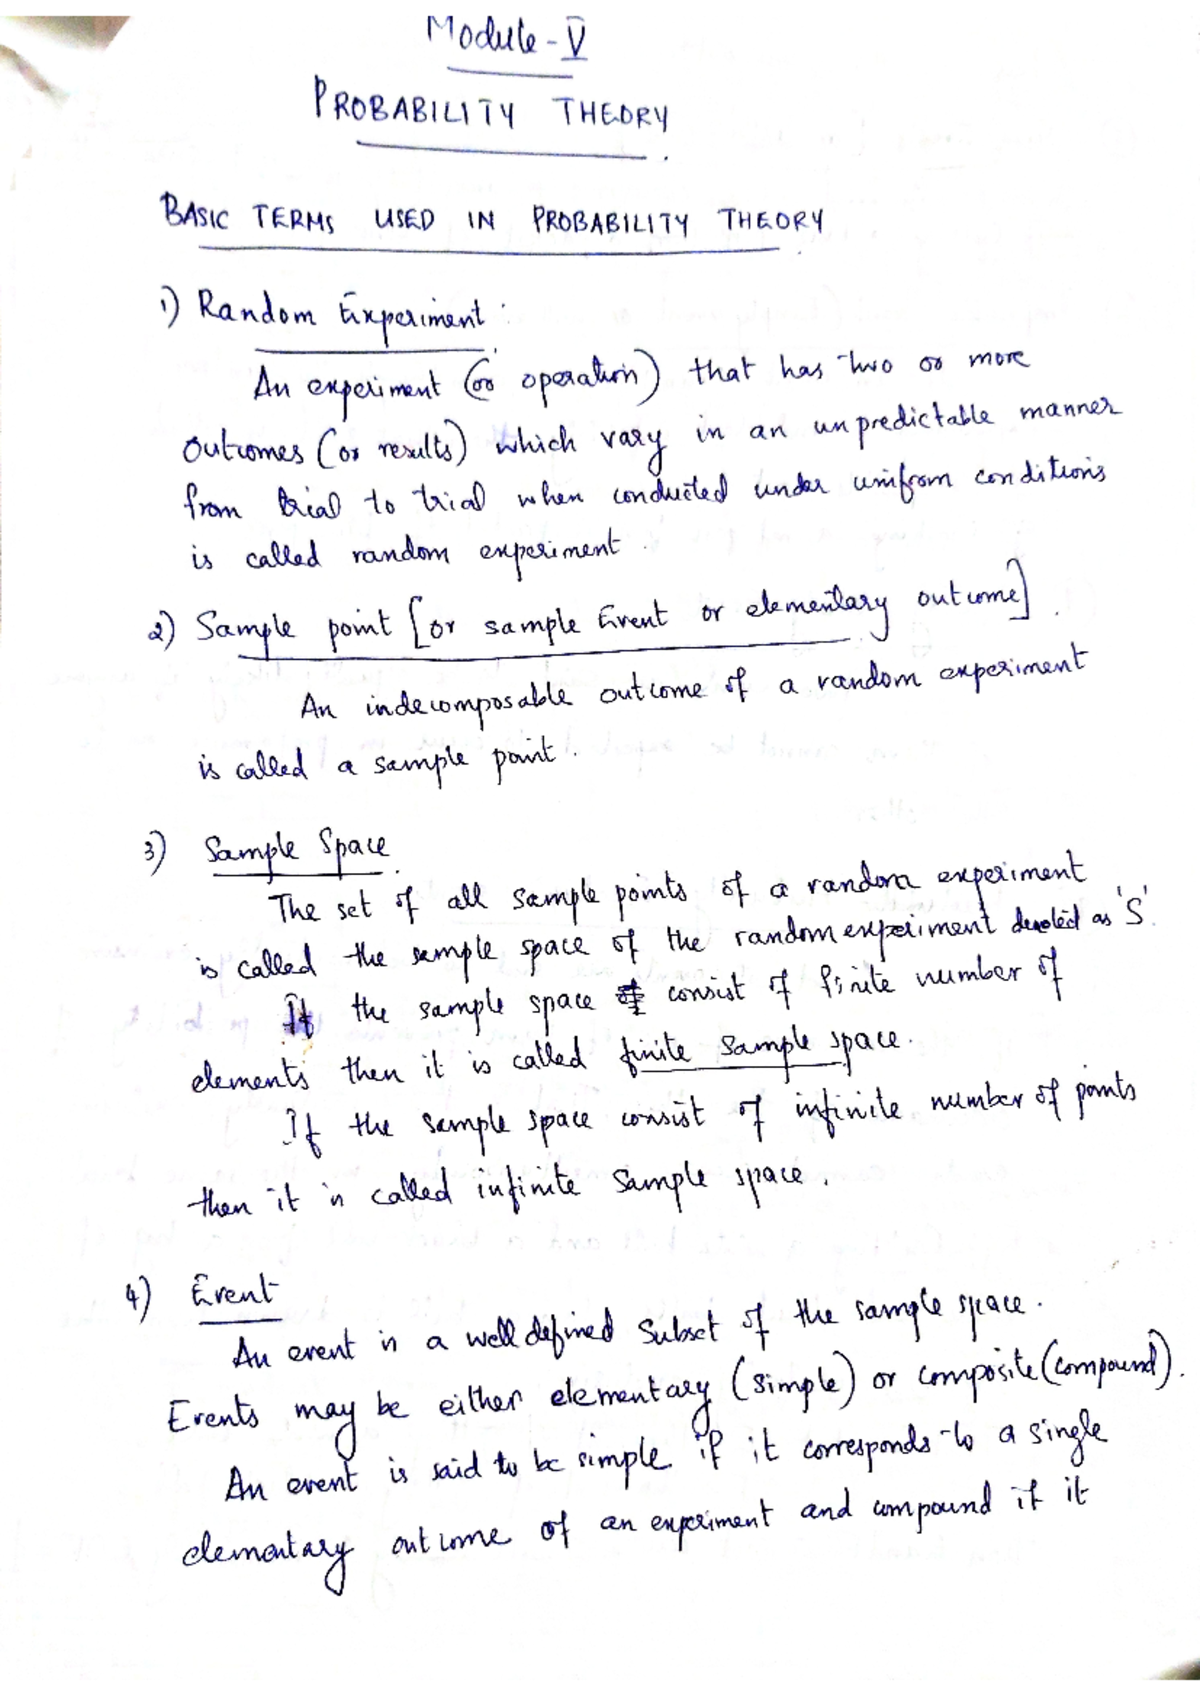 Module - V
PROBABILITY THEORY
BASIC TERMS USED IN PROBABILITY THEORY
1) Random Experiment :
An experiment (or operation) that has two or more
outcomes (or results) which vary in an unpredictable manner
from trial to trial when conducted under unifrom conditions
is called random experiment.
2) Sample point [or sample Event or elementary outcome].
An indecomposable outcome of a random experiment
is called a sample point.
3) Sample Space.
The set of all sample points of a random experiment
is called the sample space of the random experiment denoted as 'S'.
If the sample space consist of finite number of
elements then it is called finite sample space.
If the sample space consist of infinite number of points
then it is called infinite sample space.
4) Event
An event is a well defined subset of the sample space.
Events may be either elementary (simple) or composite (compound).
An event is said to be simple if it corresponds to a single
elementary outcome of an experiment and compound if it